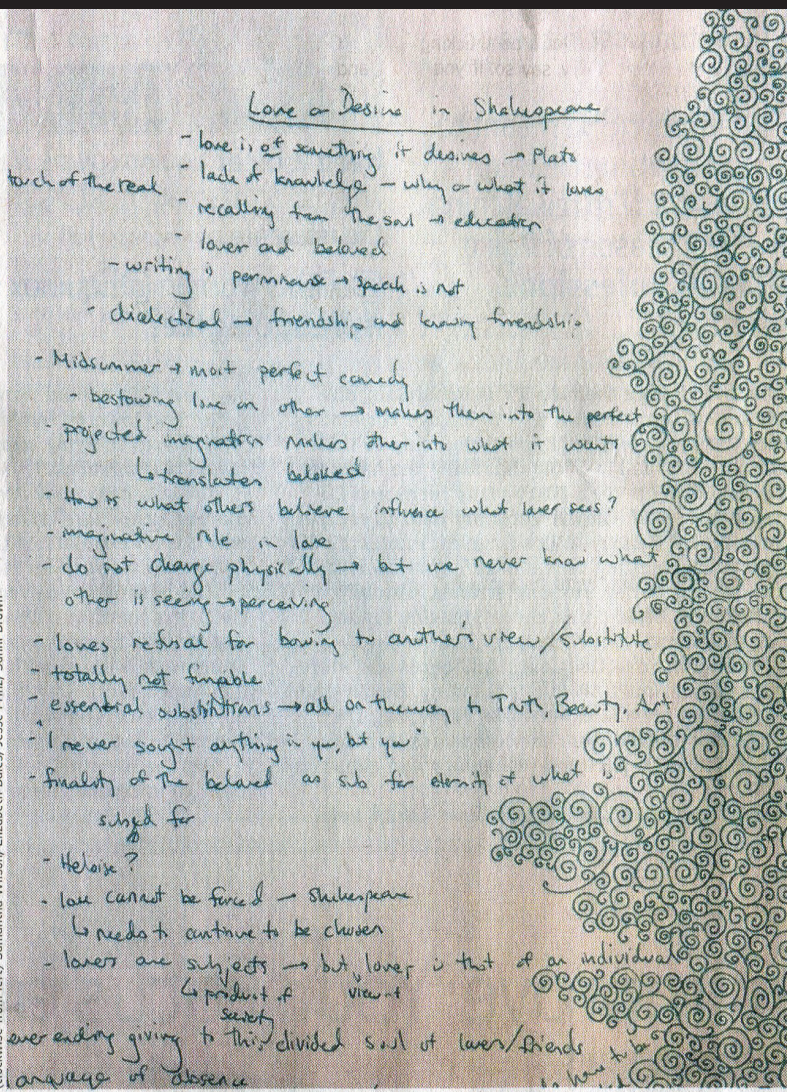 Love or Desire in Shakespeare
- love is of something it desires → Plato
touch of the real - lack of knowledge - why or what it loves
- recalling from the soul → education
lover and beloved
- writing is → speak is not
- dialectical → friendship and knowing friendship
- Midsummer → most perfect comedy
bestowing love on other → makes them into the perfect
- projected imagination makes other into what it wants
↳ translates beloved
- How is what others believe influence what lover sees?
- imaginative role in love
- do not change physically → but we never know what
other is seeing → perceiving
- loves refusal for bowing to another's view/substitute
- totally not fungible
- essential substitutions → all on the way to Truth, Beauty, Art
- "I never sought anything in you, but you"
- finality of the beloved as sub for eternity of what is
subbed for
- Heloise?
- love cannot be forced → Shakespeare
↳ needs to continue to be chosen
- lovers are subjects → but lover is that of an individual
↳ product of view of
society
ever ending giving to this divided soul of lovers/friends
language of absence